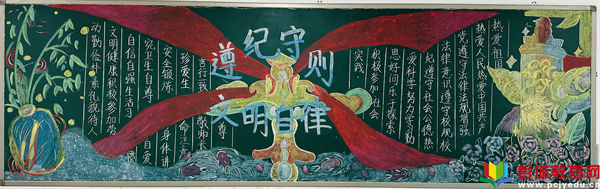 遵纪守则
文明自律
热爱祖国
热爱人民热爱中国共产
党遵守法律法规增强
法律意识遵守校规校
纪遵守社会公德热
爱科学努力学习勤
思好问乐于探索
积极参加社会
实践
尊
敬师长
言行一致
珍爱生
命
安全锻炼
身体讲
究卫生自尊
自爱
自信自强生活习
文明健康积极参加劳
动勤俭朴素礼貌待人
www.pcjyedu.cn